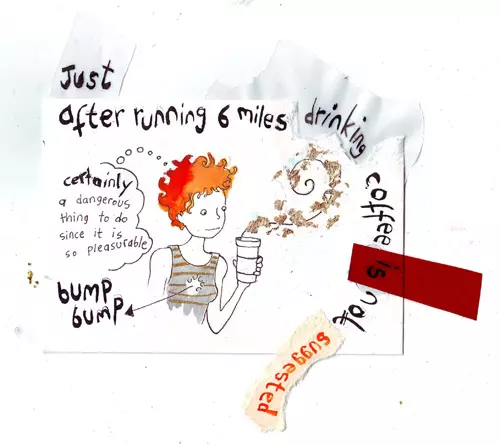 Just
after running 6 miles drinking
coffee is
not
suggested
certainly
a dangerous
thing to do
since it is
so pleasurable
bump
bump